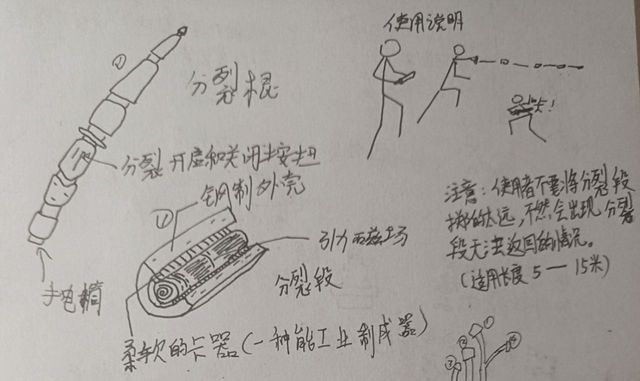 ①
分裂棍
分裂开启和关闭按扭
手电筒
使用说明
卡!
①
钢制外壳
引力磁场
分裂段
柔软的卡器(一种能工业制成器)
注意:使用者不要将分裂段
太远,不然会出现分裂
段无法返回的情况。
(适用长度5—15米)
①
②
③